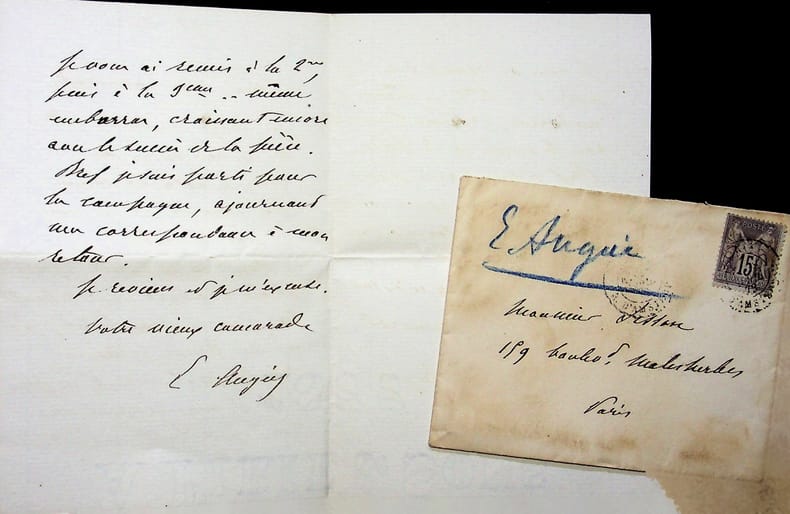 je vous ai remis à la 2me,
puis à la 9eme .. même
embarras, croissant encore
avec le succès de la pièce.
Bref je suis parti pour
la campagne, ajournant
ma correspondance à mon
retour.
Je reviens et je m'excuse.
Votre vieux camarade
E Augier
E Augier
POSTE
15
Monsieur
159 boulvd. Malesherbes
Paris